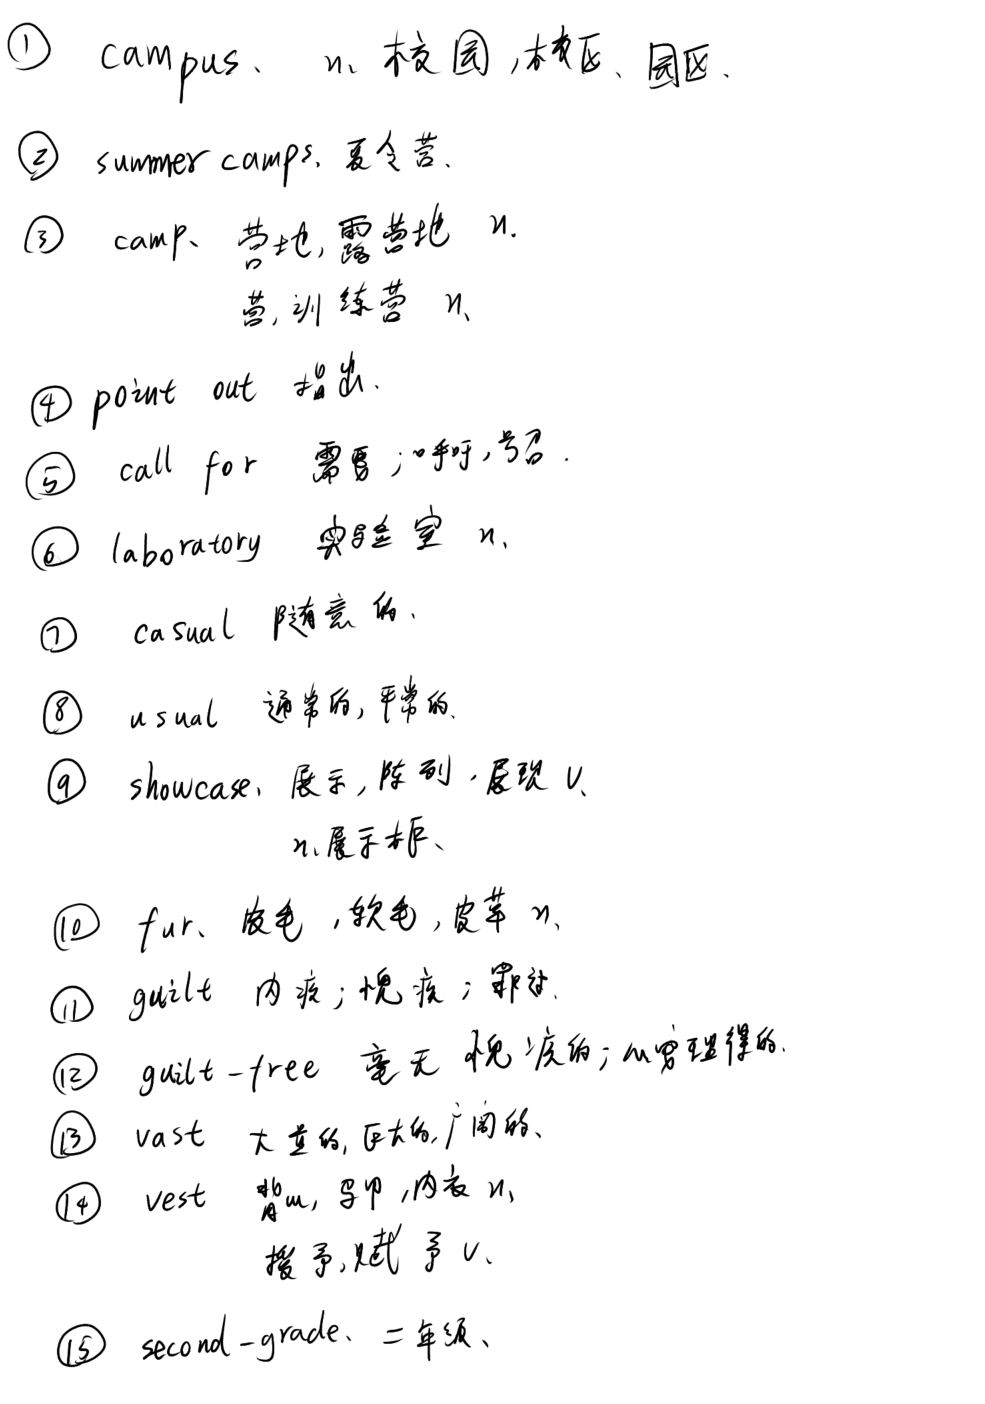 ① campus、 n、校园,校区、园区、
② summer camps、夏令营、
③ camp、营地,露营地 n.
营,训练营 n、
④ point out 指出.
⑤ call for 需要;呼吁,号召.
⑥ laboratory 实验室 n、
⑦ casual 随意的、
⑧ usual 通常的,平常的、
⑨ showcase、展示,陈列、展现 v、
n、展示柜、
⑩ fur、皮毛,软毛,皮革 n、
⑪ guilt 内疚;愧疚;罪过.
⑫ guilt-free 毫无愧疚的;心安理得的.
⑬ vast 大量的,巨大的,广阔的、
⑭ vest 背心,马甲,内衣 n、
授予,赋予 v、
⑮ second-grade、二年级、